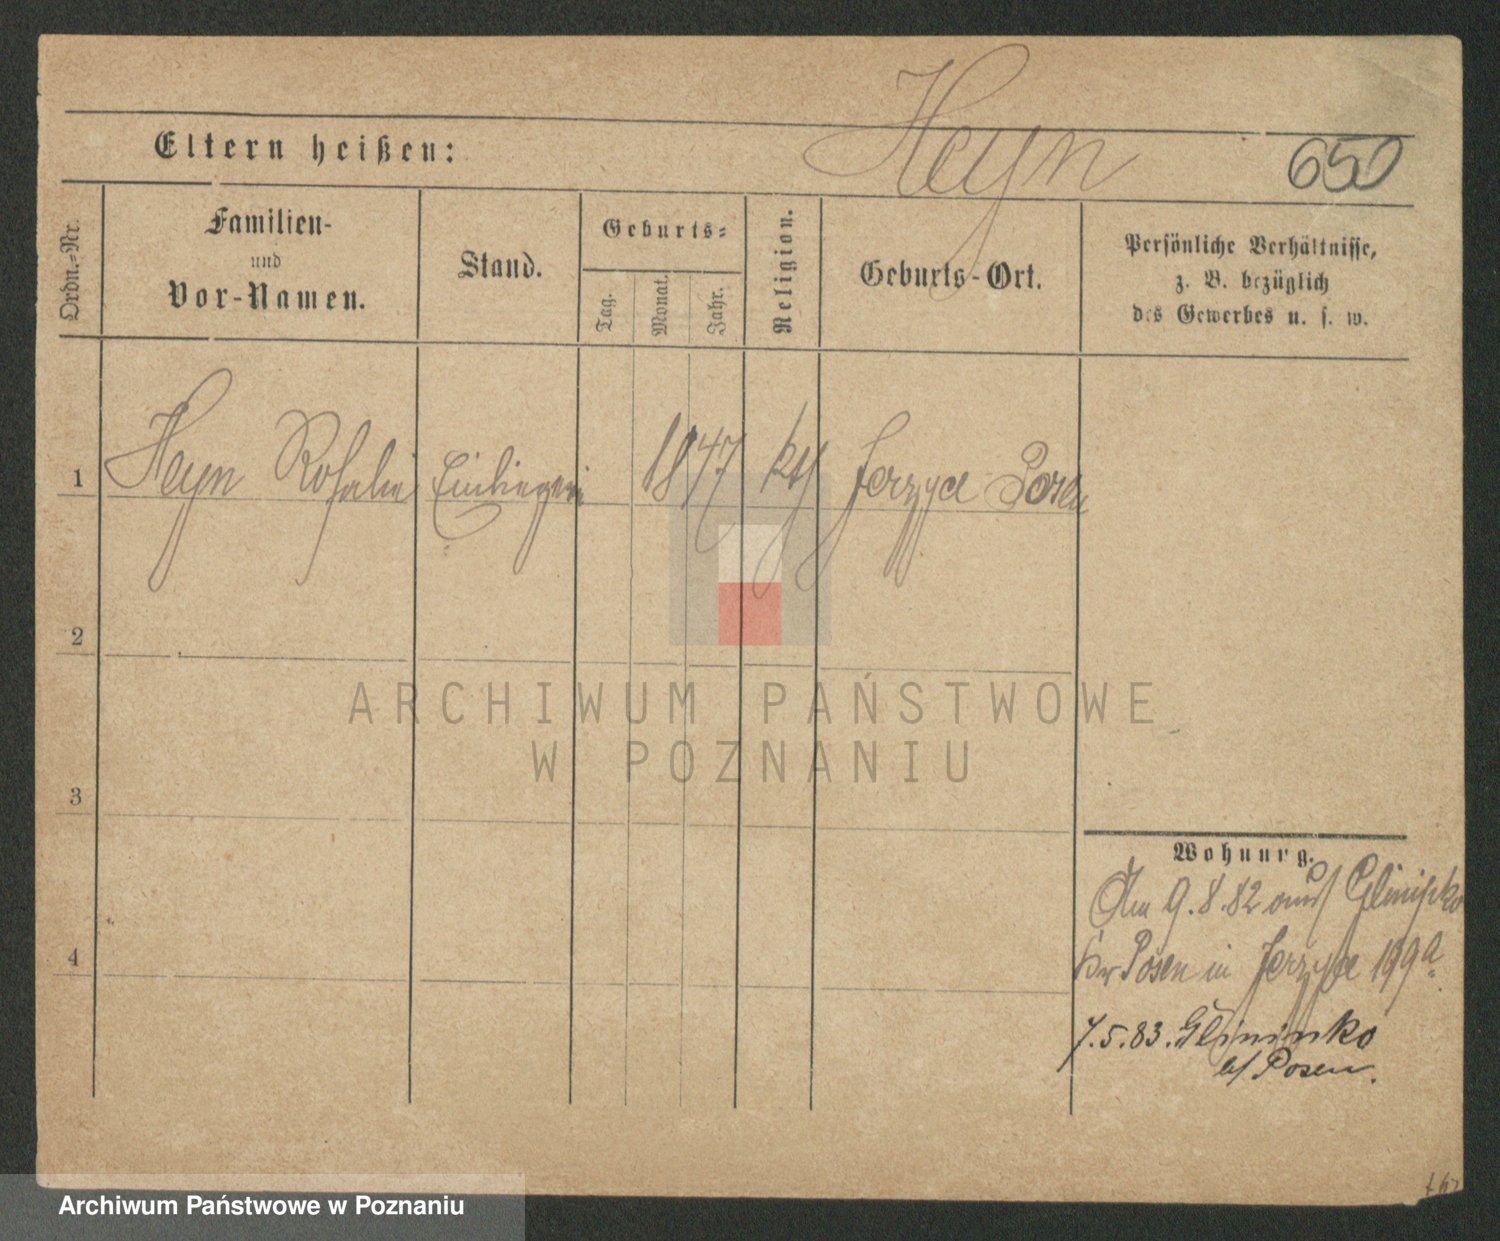 Heyn
650
Eltern heißen:
Ordn.-Nr.
Familien- und Vor-Namen.
Stand.
Geburts-
Tag.
Monat.
Jahr.
Religion.
Geburts-Ort.
Persönliche Verhältnisse,
z. B. bezüglich
des Gewerbes u. s. w.
1 Heyn Rosalie Einliegerin 1847 Jerzyce Posen
2
3
4
ARCHIWUM PAŃSTWOWE
W POZNANIU
Wohnung.
Am 9.8.82 aus
Posen in Jerzyce 199a
7.5.83. Glininko
b/ Posen.
Archiwum Państwowe w Poznaniu